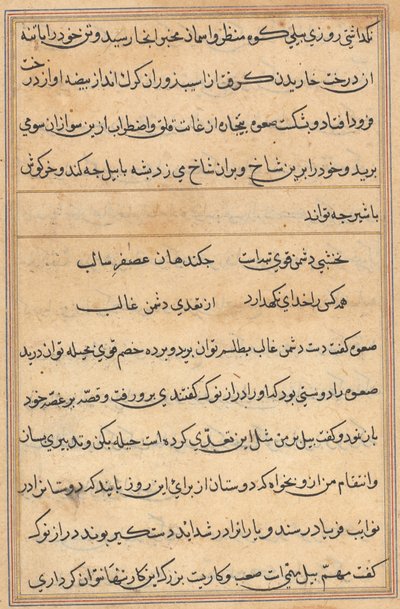 نکداشتی روزی پیلی کوه منظر واسمان مخبر انجا رسید و تن خود را با تنه
از درخت خاریدن کرفت از اسیب زور ان کرک انداز بیضه او از درخت
فرود افتاد و شکست صعوه بیچاره از غایت قلق و اضطراب ازین سو ازان سو می
برید و خود را برین شاخ و بران شاخ می زد پشه با پیل چه کند و خرکوش
با شیر چه تواند
نخشبی دشمن قوی تنهاست
چکند هان عصفر سالب
همه کس را خدای نکهدارد
از تعدی دشمن غالب
صعوه کفت دست دشمن غالب بطلسم توان برید و پرده خصم قوی بحیله توان درید
صعوه را دوستی بود که او را دراز نوک کفتندی برو رفت و قصه پر غصه خود
باز نمود و کفت پیل بر من مثل این تعدی کرده است حیله بکن و تدبیری بسان
و انتقام من از و بخواه که دوستان از برای این روز باید که دوستانرا در
نوایب فریاد رسند و یارانرا در شداید دستکیر بوند دراز نوک
کفت مهم پیل مهمی است صعب و کاریست بزرک این کار تنها نتوان کرد اری